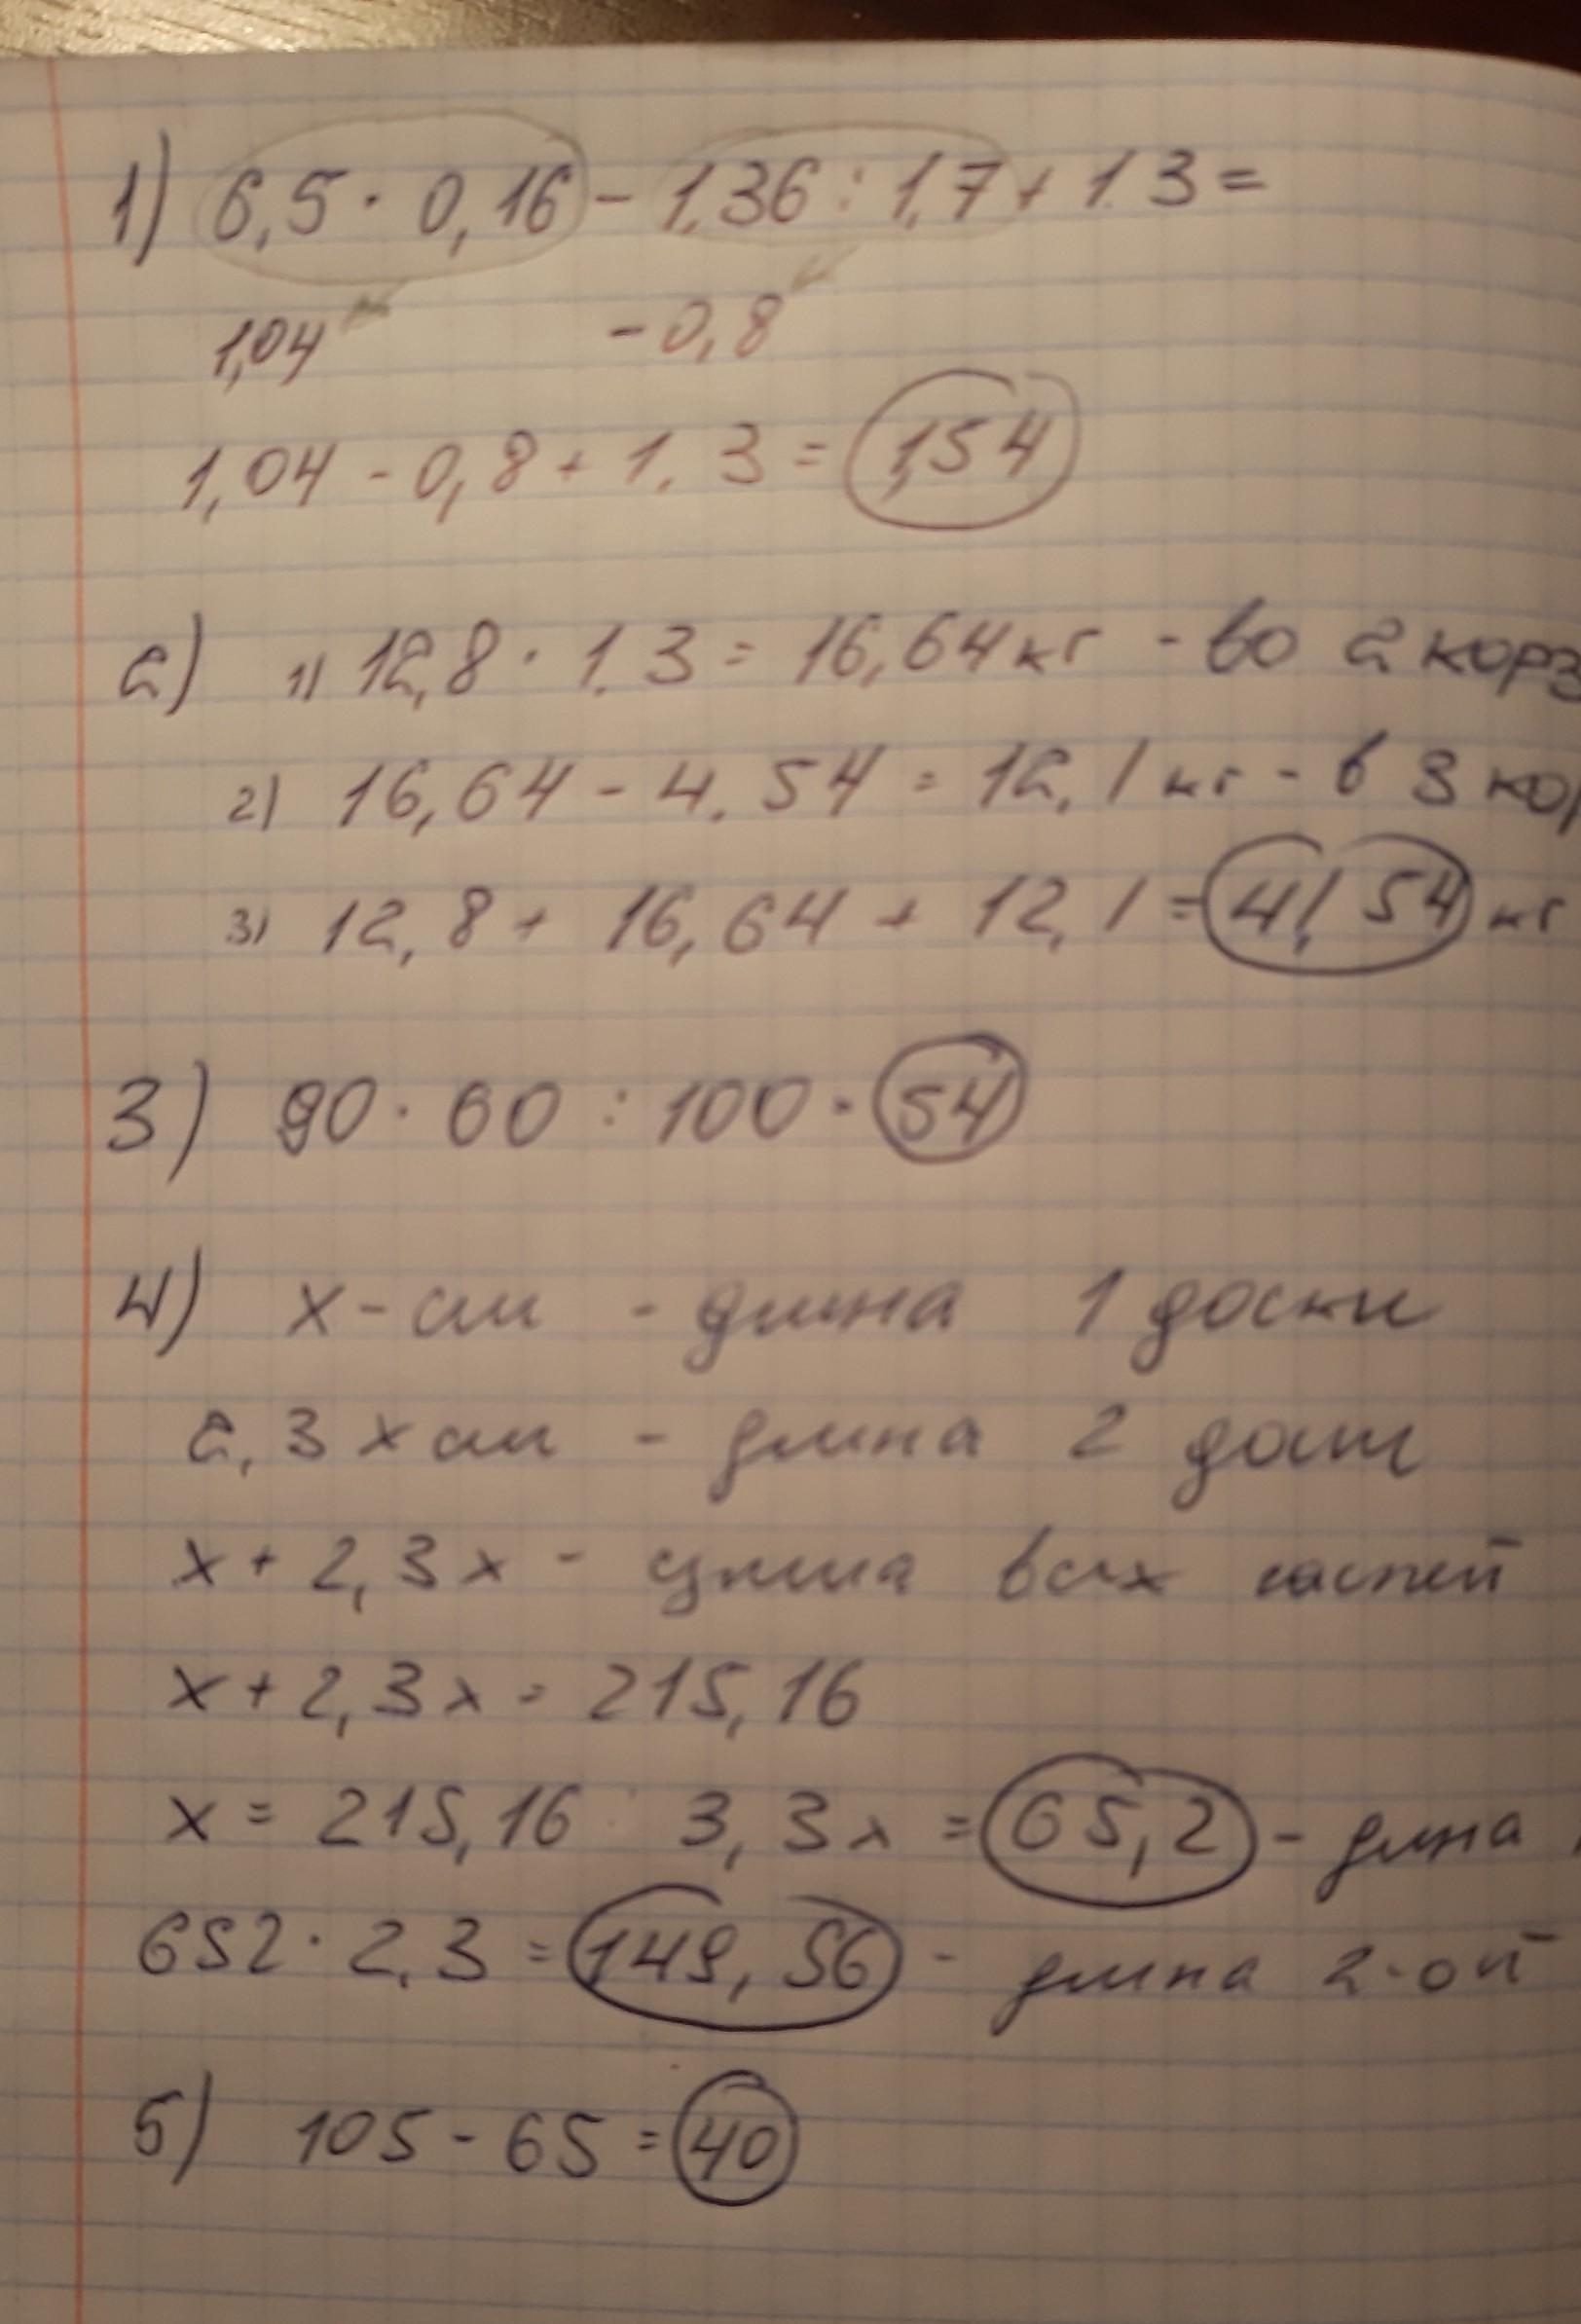 1) 6,5 · 0,16 - 1,36 : 1,7 + 1.3 =
1,04 - 0,8
1,04 - 0,8 + 1.3 = 1,54
2) 1) 12,8 · 1.3 = 16,64 кг - во 2 корз
2) 16,64 - 4.54 = 12,1 кг - в 3 кор
3) 12,8 + 16,64 + 12,1 = 41,54 кг
3) 90 · 60 : 100 = 54
4) x - см - длина 1 доски
2,3 x см - длина 2 доски
x + 2,3 x - длина всех частей
x + 2,3 x = 215,16
x = 215,16 : 3,3 x = 65,2 - длина
652 · 2,3 = 149,56 - длина 2-ой
5) 105 - 65 = 40